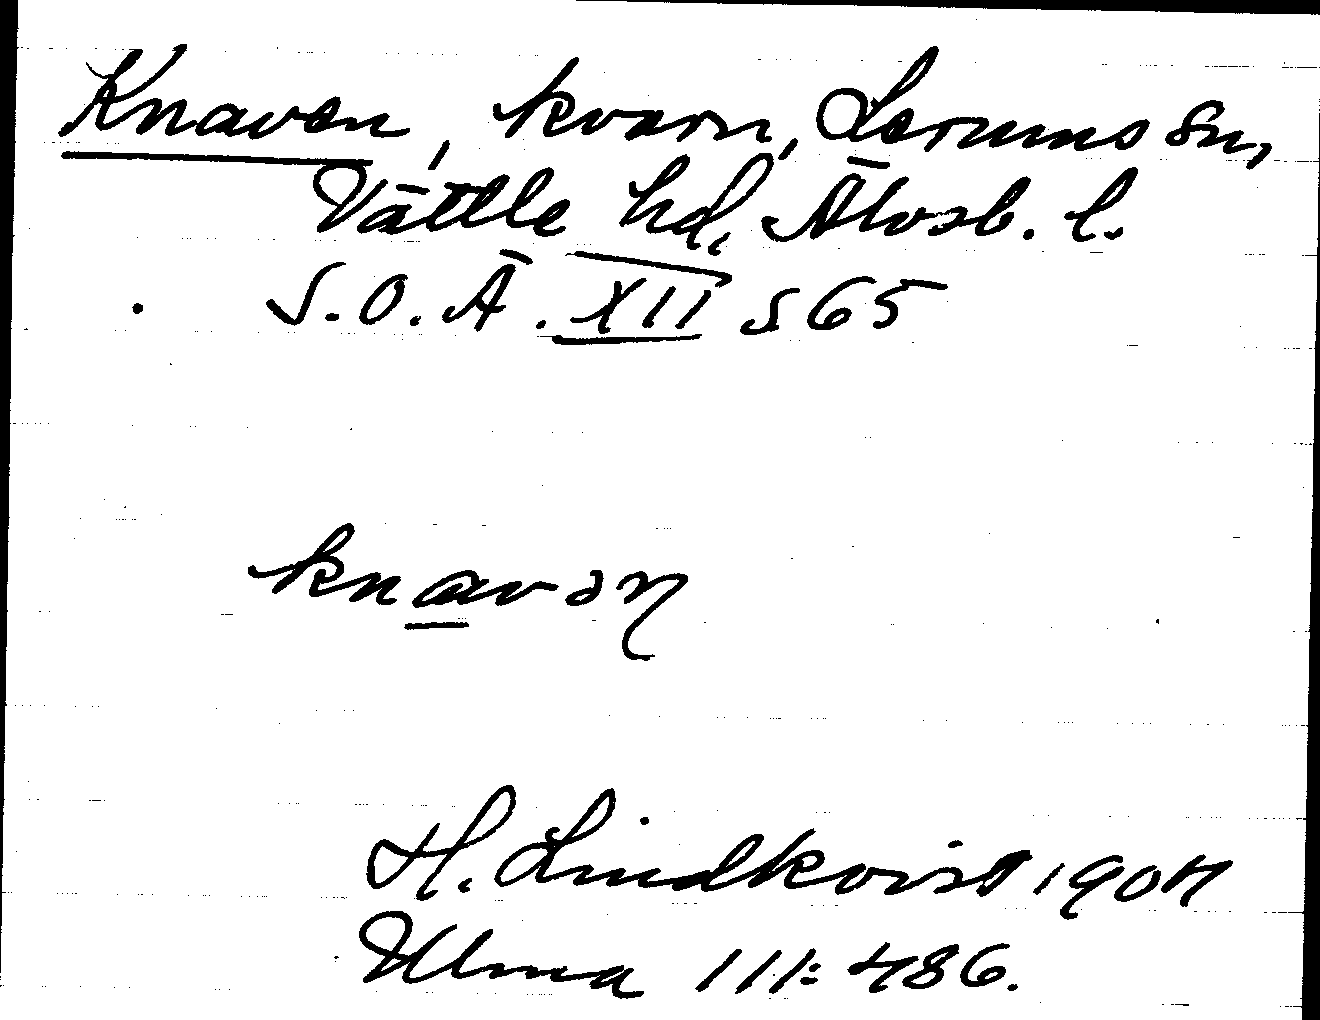 Knaven, kvarn, Lerums sn,
Vättle hd, Älvsb. l.
S.O.Ä. XII s 65
knavən
H. Lindkvist 1904
Ulma 111:486.